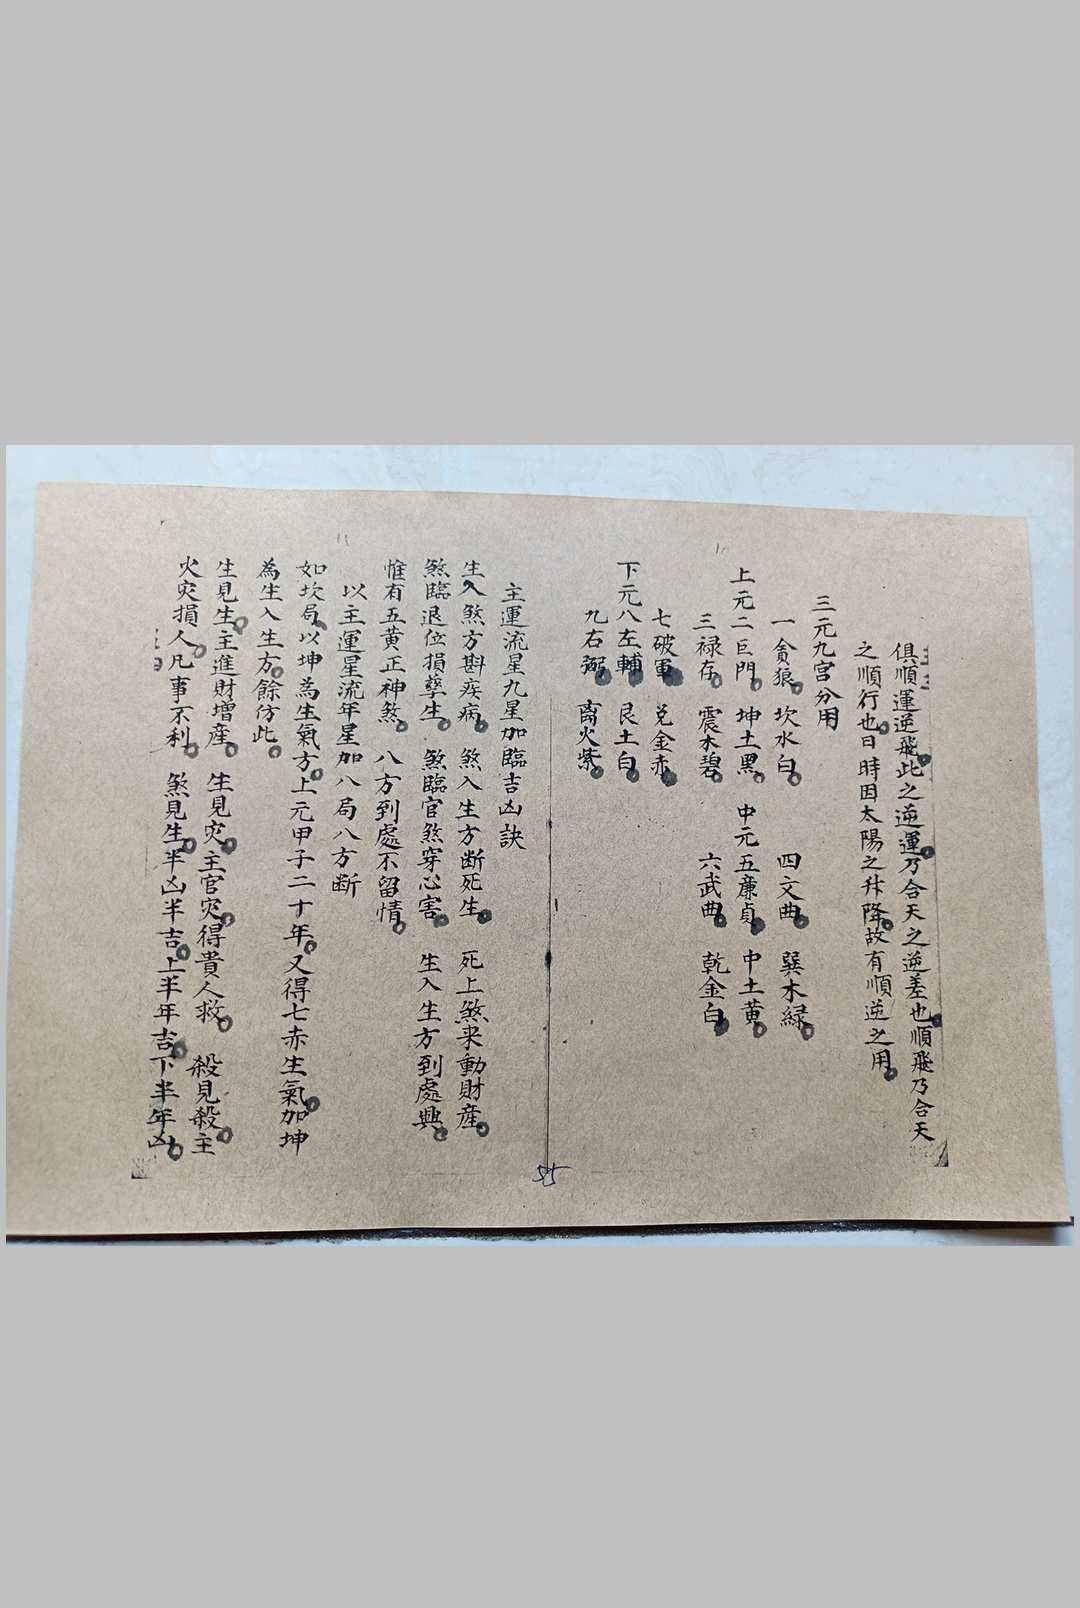 俱順運逆飛。此之逆運。乃合天之逆差也。順飛乃合天
之順行也。日時因太陽之升降。故有順逆之用。
三元九宮分用
一貪狼。坎水白。 四文曲。巽木緑。
上元二巨門。坤土黑。 中元五廉貞。中土黄。
三禄存。震木碧。 六武曲。乾金白。
七破軍。兑金赤。
下元八左輔。艮土白。
九右弼。离火紫。
主運流星九星加臨吉凶訣
生入煞方斟疾病。煞入生方断死生。死上煞来動財産。
煞臨退位損孽生。煞臨官煞穿心害。生入生方到處興。
惟有五黄正神煞。八方到處不留情。
以主運星流年星加八局八方断
如坎局。以坤為生氣方。上元甲子二十年。又得七赤生氣。加坤
為生入生方。餘仿此。
生見生。主進財増産。生見灾。主官灾。得貴人救。殺見殺。主
火灾損人。凡事不利。煞見生。半凶半吉。上半年吉。下半年凶。
55